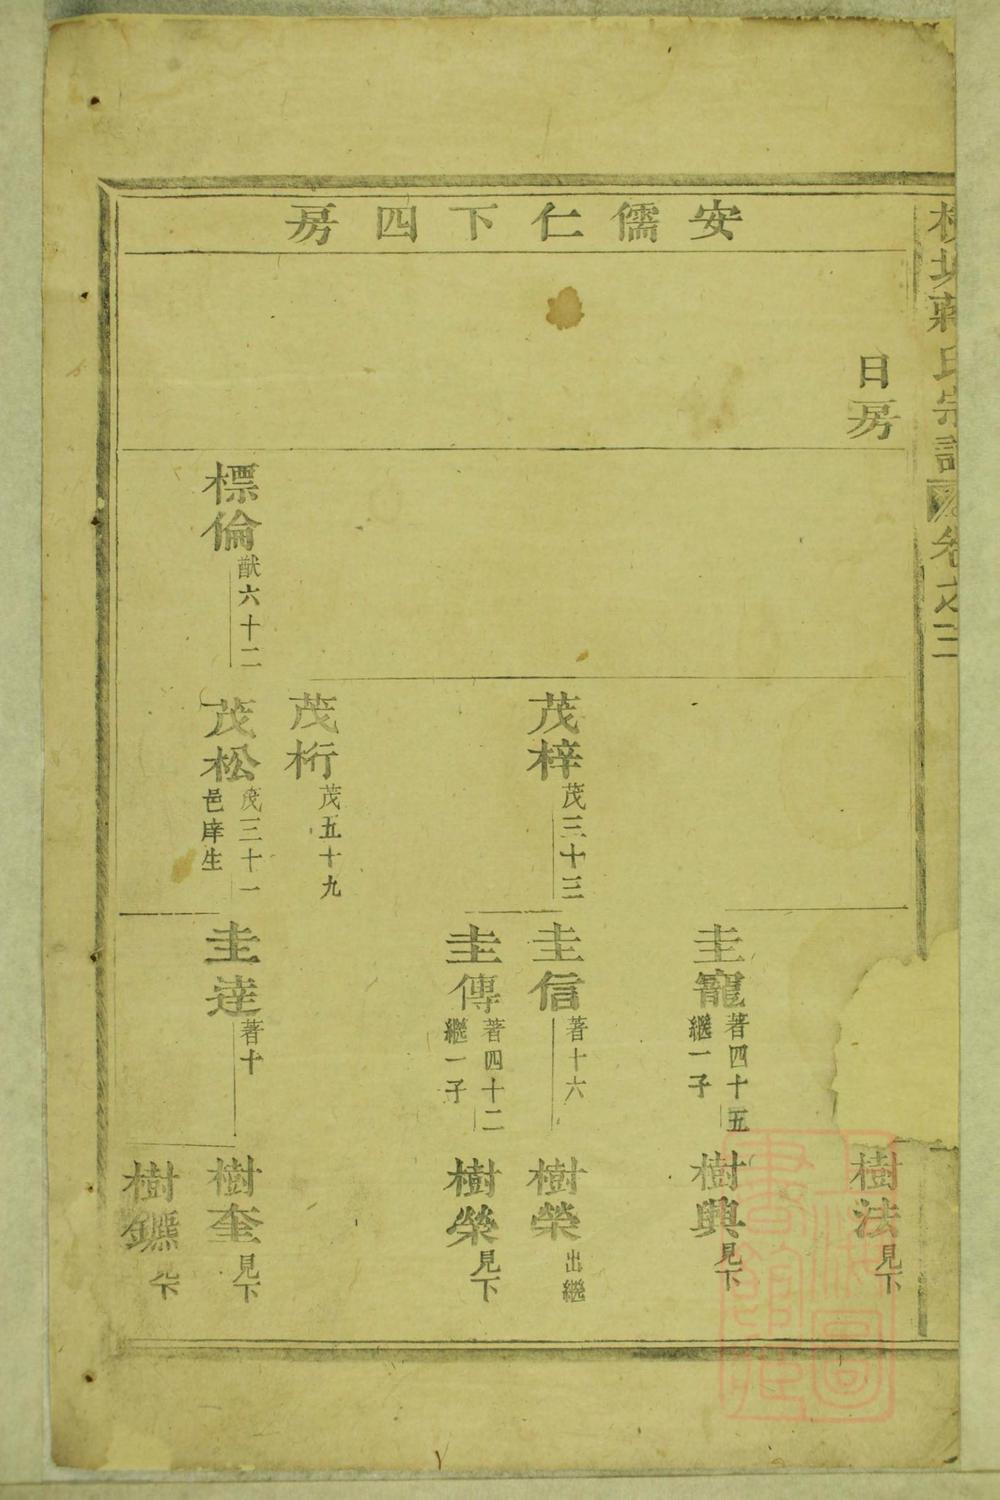 蔣氏宗譜
卷之三
安儒仁下四房
日房
標倫 猷六十二
茂梓 茂三十三
茂桁 茂五十九
茂松 茂三十一 邑庠生
圭寵 著四十五 繼一子
圭信 著十六
圭傳 著四十二 繼一子
圭達 著十
樹法 見下
樹興 見下
樹榮 出繼
樹榮 見下
樹奎 見下
樹 見下
上海圖書館藏